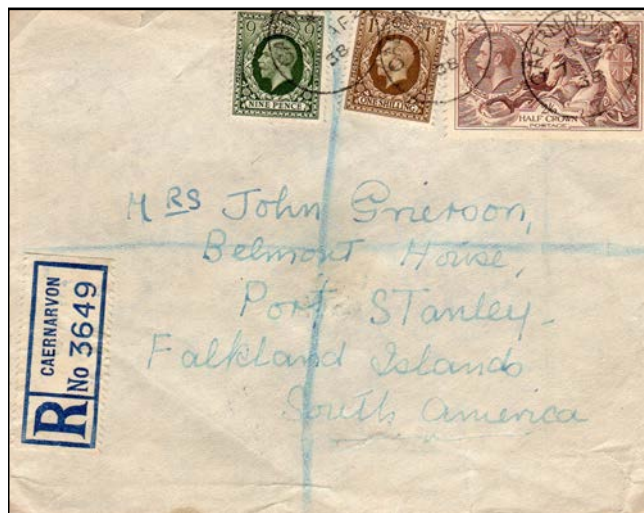 9 9
NINE PENCE
1/- 1/-
ONE SHILLING
HALF CROWN
POSTAGE
38
38
CAERNARVON
38
Mrs John Grierson,
Belmont House,
Port STanley-
Falkland Islands
South America
R
CAERNARVON
No 3649